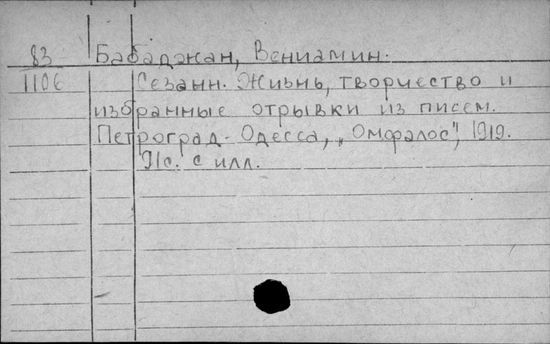 83 Бабаджан, Вениамин.
1106 Сезанн. Жизнь, творчество и
избранные отрывки из писем.
Петроград-Одесса, „Омфалос", 1919.
91с. с илл.